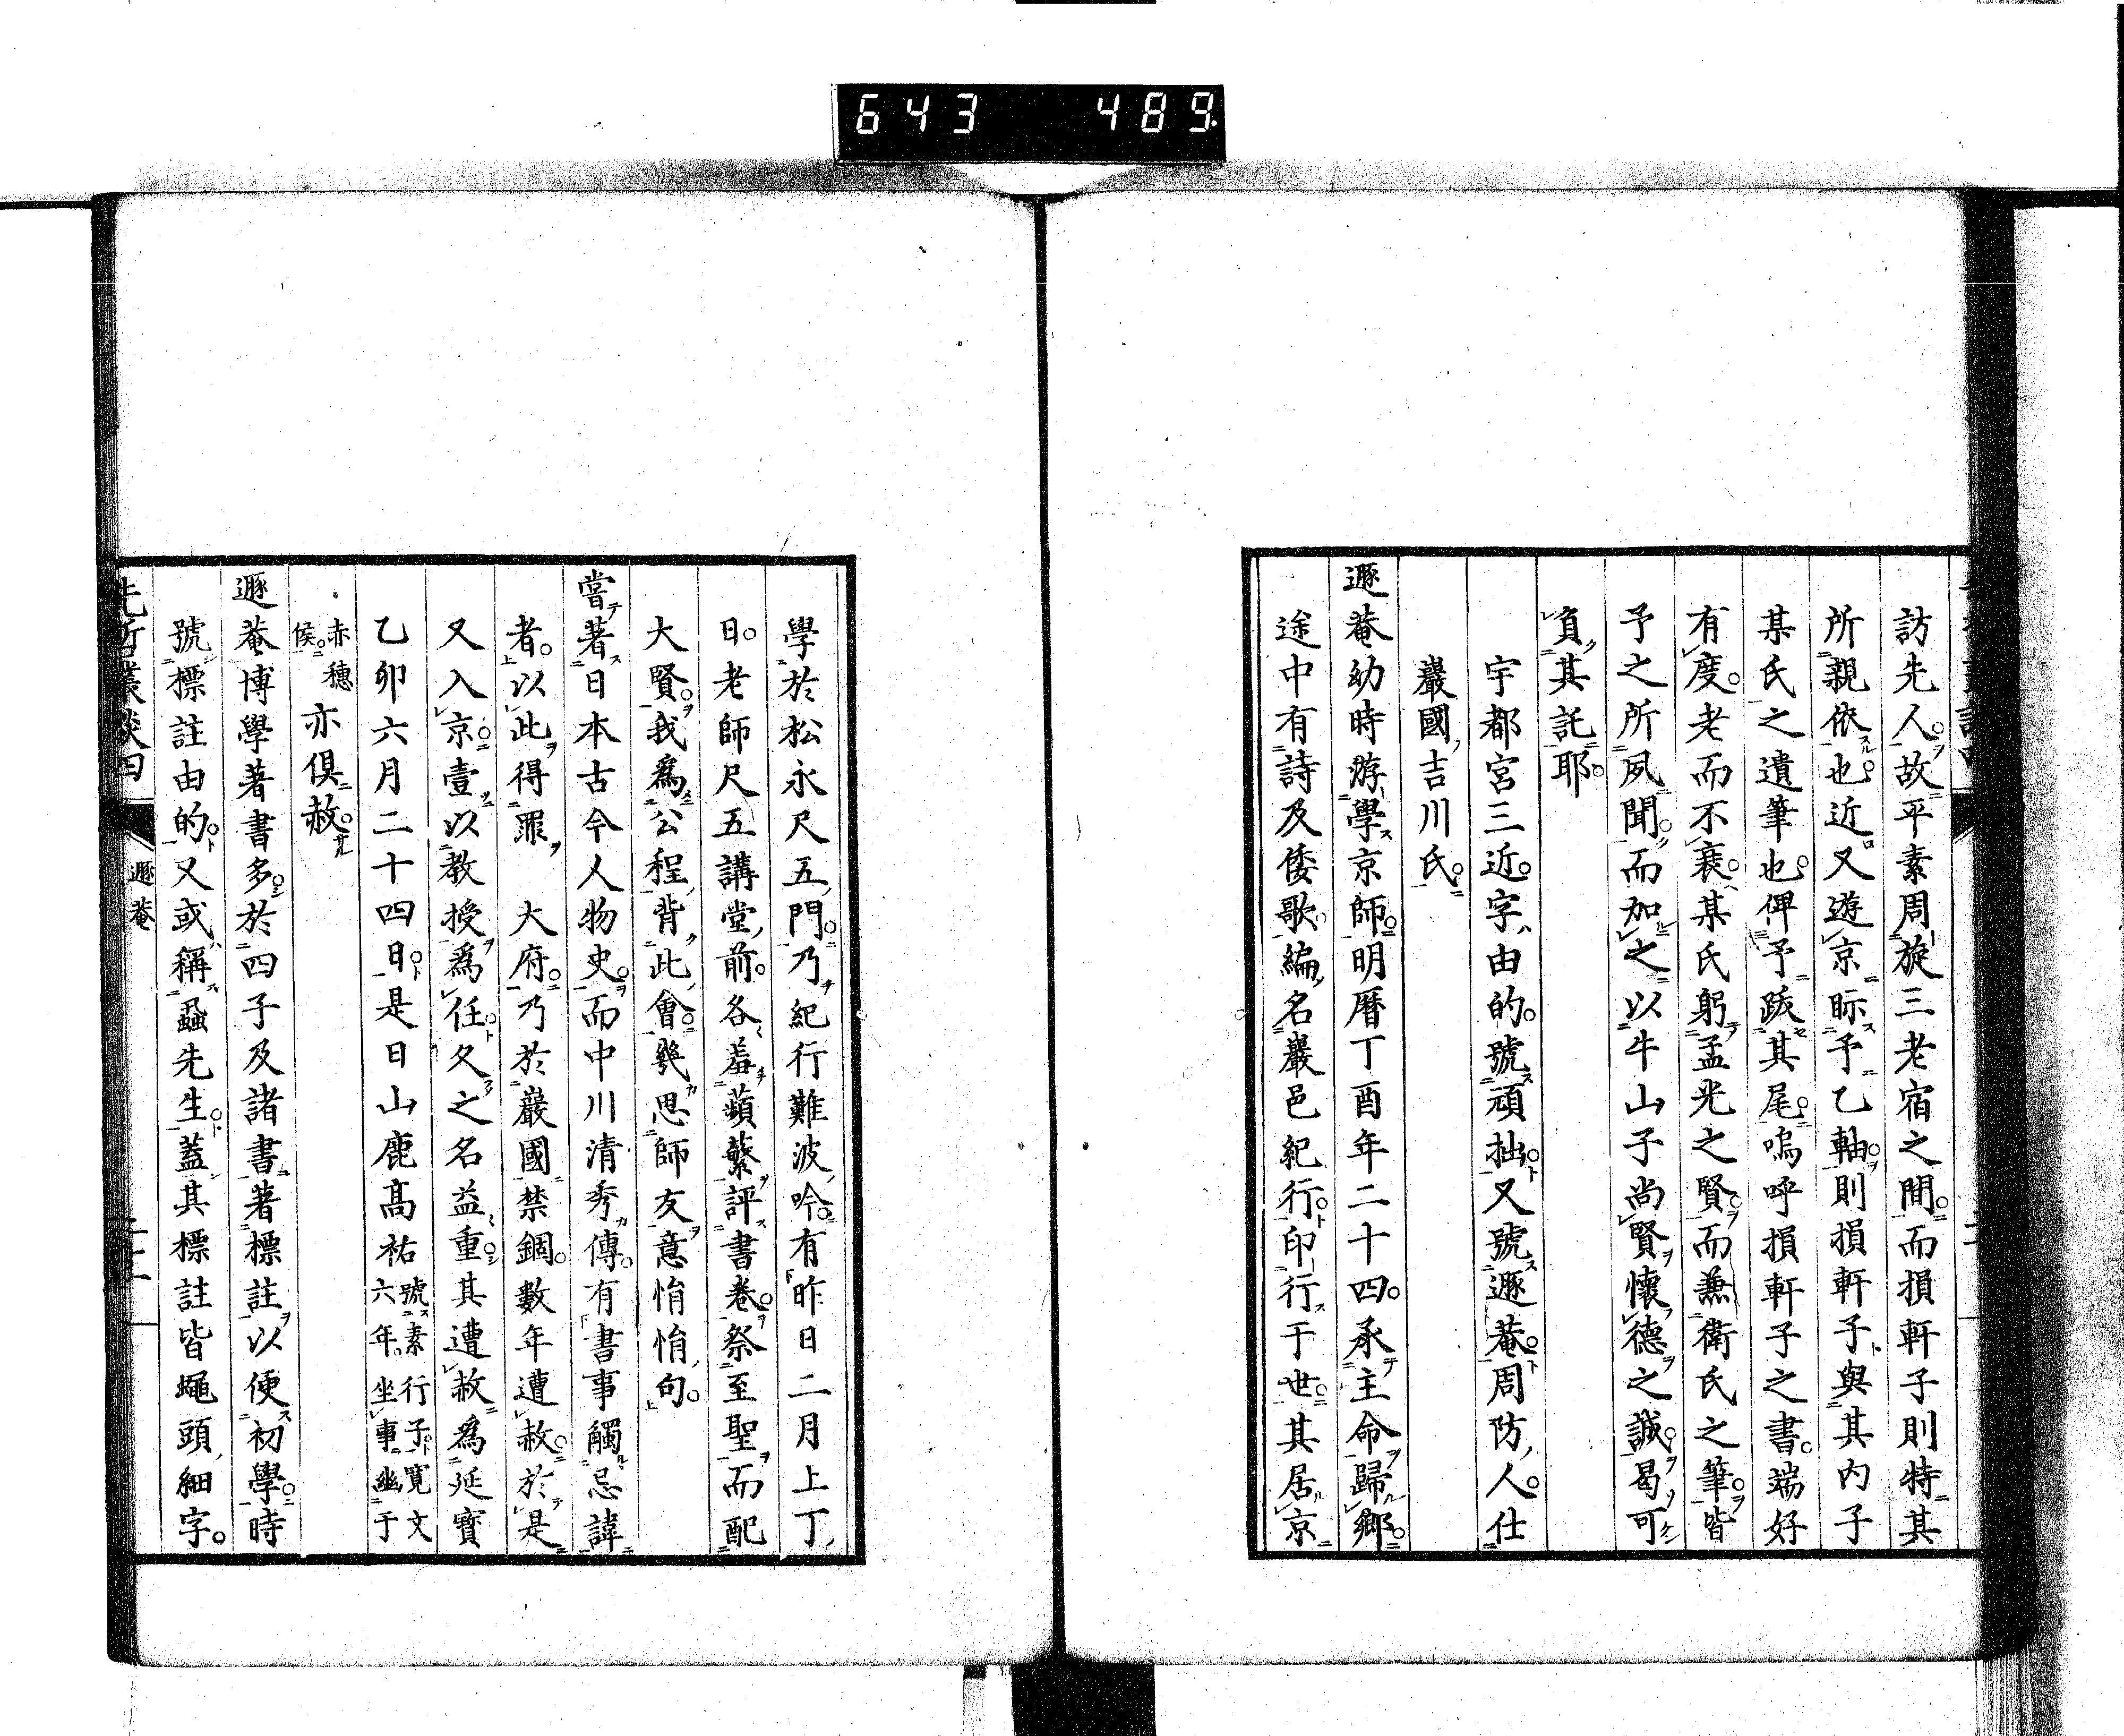 643 489
訪先人故平素周旋三老宿之間而損軒子則特其
所親依也近又遊京眎予乙軸則損軒子與其内子
某氏之遺筆也俾予跋其尾嗚呼損軒子之書端好
有度老而不衰某氏躬孟光之賢而兼衛氏之筆皆
予之所夙聞而加之以牛山子尚賢懷德之誠曷可
負其託耶
宇都宮三近字由的號頑拙又號遯菴周防人仕
巖國吉川氏
遯菴幼時游學京師明曆丁酉年二十四承主命歸鄉
途中有詩及倭歌編名巖邑紀行印行于世其居京
學於松永尺五門乃紀行難波吟有昨日二月上丁
日老師尺五講堂前各羞蘋蘩評書卷祭至聖而配
大賢我爲公程背此會幾思師友意悁悁句
嘗著日本古今人物史而中川清秀傳有書事觸忌諱
者以此得罪 大府乃於巖國禁錮數年遭赦於是
又入京壹以教授爲任久之名益重其遭赦爲延寶
乙卯六月二十四日是日山鹿高祐號素行子寬文
六年坐事幽于
赤穗
侯亦俱赦
遯菴博學著書多於四子及諸書著標註以便初學時
號標註由的又或稱蝨先生蓋其標註皆蠅頭細字
先哲叢談四 遯菴